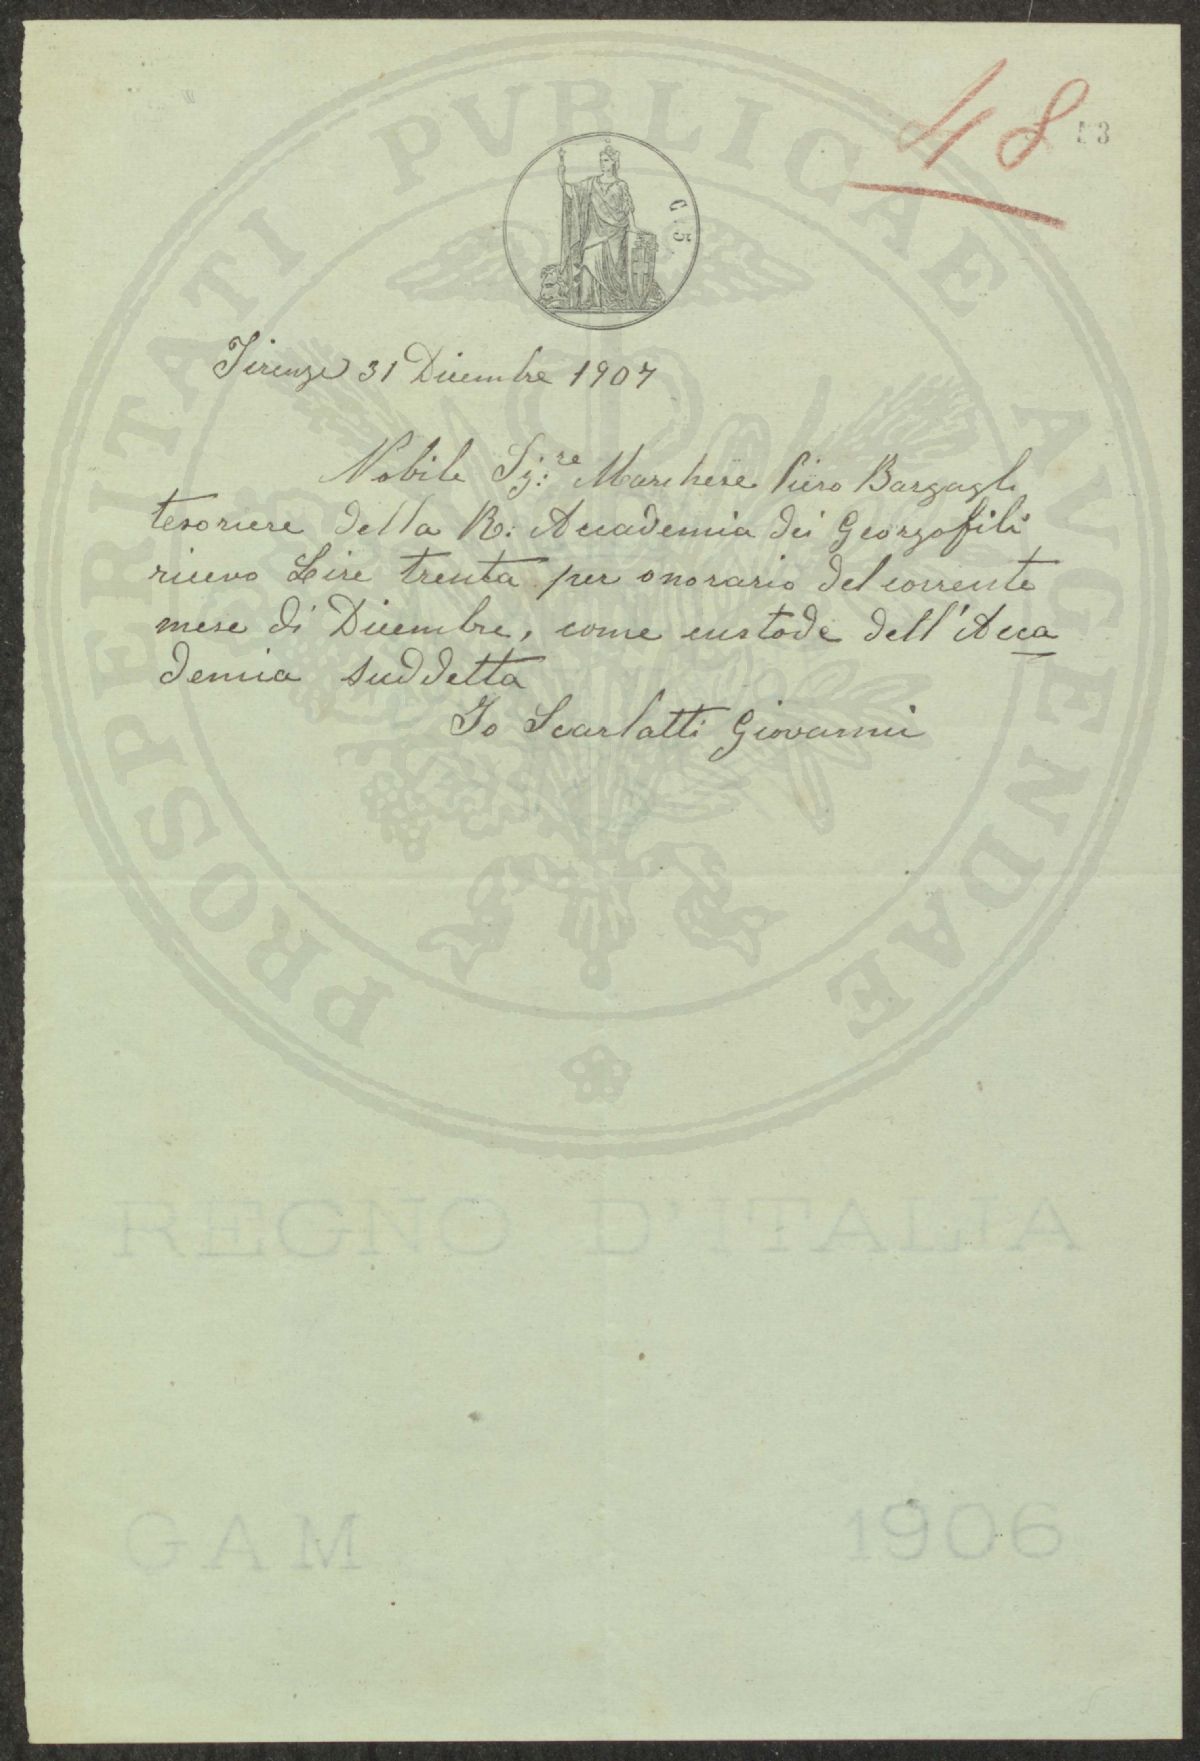 48
53
C. 5
Firenze 31 Dicembre 1907
Nobile Sig:re Marchese Piero Bargagli
tesoriere della R: Accademia dei Georgofili
ricevo Lire trenta per onorario del corrente
mese di Dicembre, come custode dell'Acca
demia suddetta
Io Scarlatti Giovanni
PROSPERITATI PVBLICAE AVGENDAE
REGNO D'ITALIA
GAM 1906